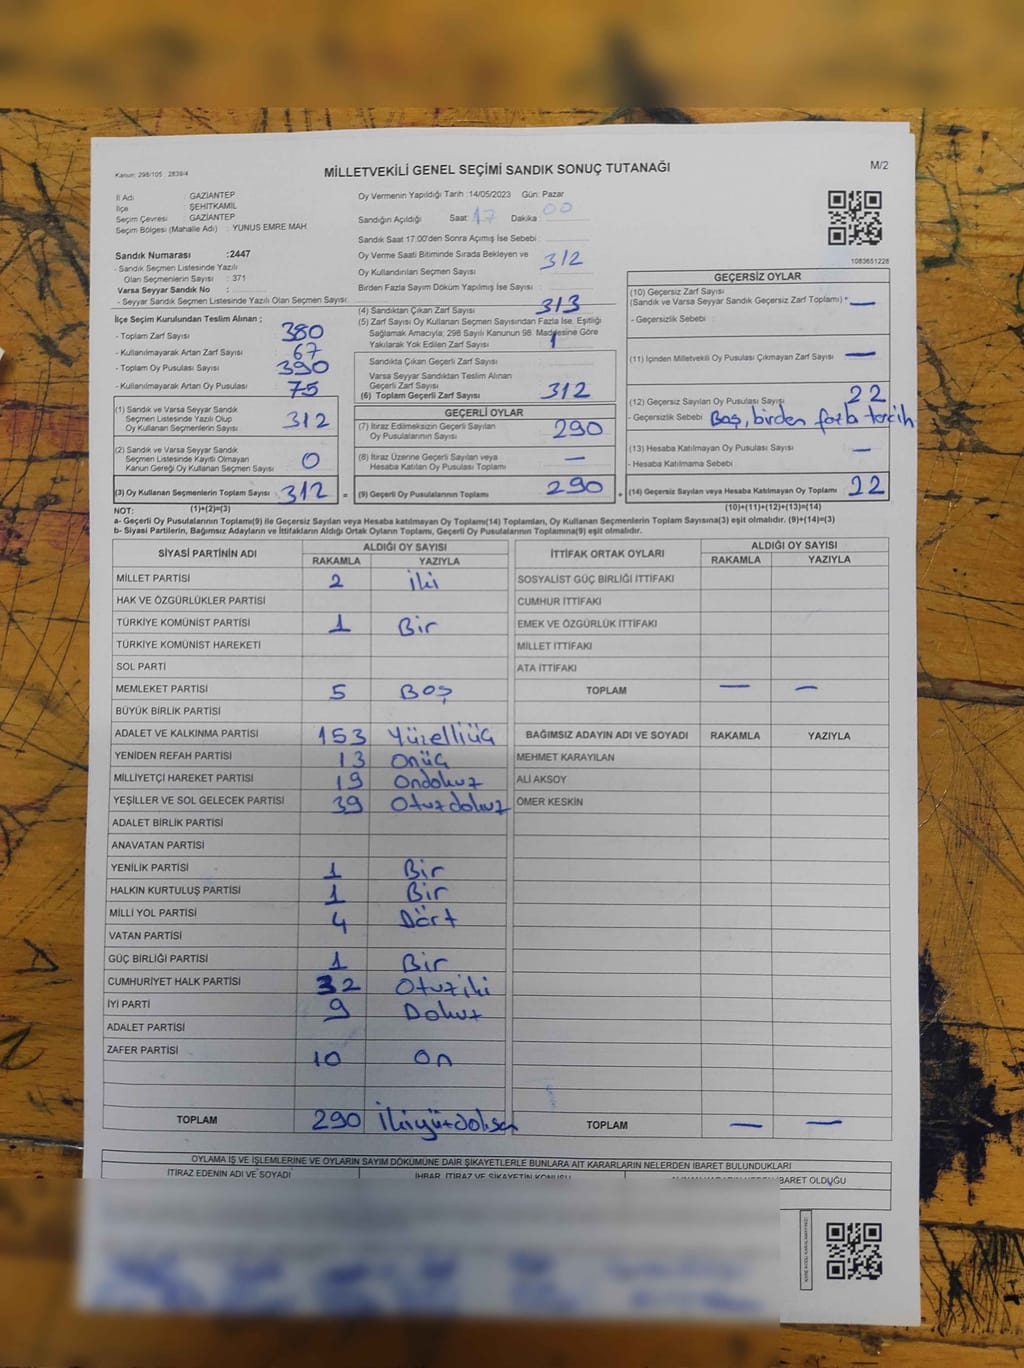 Kanun: 298/105 , 2839/4
MİLLETVEKİLİ GENEL SEÇİMİ SANDIK SONUÇ TUTANAĞI
M/2
İl Adı : GAZİANTEP
İlçe : ŞEHİTKAMİL
Seçim Çevresi : GAZİANTEP
Seçim Bölgesi (Mahalle Adı) : YUNUS EMRE MAH
Sandık Numarası :2447
- Sandık Seçmen Listesinde Yazılı
Olan Seçmenlerin Sayısı : 371
Varsa Seyyar Sandık No :
- Seyyar Sandık Seçmen Listesinde Yazılı Olan Seçmen Sayısı:
Oy Vermenin Yapıldığı Tarih :14/05/2023 Gün: Pazar
Sandığın Açıldığı Saat: 17 Dakika : 00
Sandık Saat 17:00'den Sonra Açımış İse Sebebi :
Oy Verme Saati Bitiminde Sırada Bekleyen ve
Oy Kullandırılan Seçmen Sayısı : 312
Birden Fazla Sayım Döküm Yapılmış İse Sayısı :
1083651228
İlçe Seçim Kurulundan Teslim Alınan ;
- Toplam Zarf Sayısı : 380
- Kullanılmayarak Artan Zarf Sayısı : 67
- Toplam Oy Pusulası Sayısı : 390
- Kullanılmayarak Artan Oy Pusulası : 75
(1) Sandık ve Varsa Seyyar Sandık
Seçmen Listesinde Yazılı Olup
Oy Kullanan Seçmenlerin Sayısı : 312
(2) Sandık ve Varsa Seyyar Sandık
Seçmen Listesinde Kayıtlı Olmayan
Kanun Gereği Oy Kullanan Seçmen Sayısı : 0
(3) Oy Kullanan Seçmenlerin Toplam Sayısı : 312 =
(4) Sandıktan Çıkan Zarf Sayısı : 313
(5) Zarf Sayısı Oy Kullanan Seçmen Sayısından Fazla İse, Eşitliği
Sağlamak Amacıyla; 298 Sayılı Kanunun 98. Maddesine Göre
Yakılarak Yok Edilen Zarf Sayısı : 1
Sandıkta Çıkan Geçerli Zarf Sayısı :
Varsa Seyyar Sandıktan Teslim Alınan
Geçerli Zarf Sayısı :
(6) Toplam Geçerli Zarf Sayısı : 312
GEÇERLİ OYLAR
(7) İtiraz Edimeksizin Geçerli Sayılan
Oy Pusulalarının Sayısı : 290
(8) İtiraz Üzerine Geçerli Sayılan veya
Hesaba Katılan Oy Pusulası Toplamı : —
(9) Geçerli Oy Pusulalarının Toplamı : 290 +
GEÇERSİZ OYLAR
(10) Geçersiz Zarf Sayısı
(Sandık ve Varsa Seyyar Sandık Geçersiz Zarf Toplamı) : —
- Geçersizlik Sebebi :
(11) İçinden Milletvekili Oy Pusulası Çıkmayan Zarf Sayısı : —
(12) Geçersiz Sayılan Oy Pusulası Sayısı : 22
- Geçersizlik Sebebi : Boş, birden fazla tercih
(13) Hesaba Katılmayan Oy Pusulası Sayısı : —
- Hesaba Katılmama Sebebi :
(14) Geçersiz Sayılan veya Hesaba Katılmayan Oy Pusulası Toplamı : 22
NOT: (1)+(2)=(3) (10)+(11)+(12)+(13)=(14)
a- Geçerli Oy Pusulalarının Toplamı(9) ile Geçersiz Sayılan veya Hesaba katılmayan Oy Toplamı(14) Toplamları, Oy Kullanan Seçmenlerin Toplam Sayısına(3) eşit olmalıdır. (9)+(14)=(3)
b- Siyasi Partilerin, Bağımsız Adayların ve İttifakların Aldığı Ortak Oyların Toplamı, Geçerli Oy Pusulalarının Toplamına(9) eşit olmalıdır.
SİYASİ PARTİNİN ADI ALDIĞI OY SAYISI
RAKAMLA YAZIYLA
MİLLET PARTİSİ 2 İki
HAK VE ÖZGÜRLÜKLER PARTİSİ
TÜRKİYE KOMÜNİST PARTİSİ 1 Bir
TÜRKİYE KOMÜNİST HAREKETİ
SOL PARTİ
MEMLEKET PARTİSİ 5 Beş
BÜYÜK BİRLİK PARTİSİ
ADALET VE KALKINMA PARTİSİ 153 Yüzelliüç
YENİDEN REFAH PARTİSİ 13 Onüç
MİLLİYETÇİ HAREKET PARTİSİ 19 Ondokuz
YEŞİLLER VE SOL GELECEK PARTİSİ 39 Otuzdokuz
ADALET BİRLİK PARTİSİ
ANAVATAN PARTİSİ
YENİLİK PARTİSİ 1 Bir
HALKIN KURTULUŞ PARTİSİ 1 Bir
MİLLİ YOL PARTİSİ 4 Dört
VATAN PARTİSİ
GÜÇ BİRLİĞİ PARTİSİ 1 Bir
CUMHURİYET HALK PARTİSİ 32 Otuziki
İYİ PARTİ 9 Dokuz
ADALET PARTİSİ
ZAFER PARTİSİ 10 On
TOPLAM 290 İkiyüzdoksan
İTTİFAK ORTAK OYLARI ALDIĞI OY SAYISI
RAKAMLA YAZIYLA
SOSYALİST GÜÇ BİRLİĞİ İTTİFAKI
CUMHUR İTTİFAKI
EMEK VE ÖZGÜRLÜK İTTİFAKI
MİLLET İTTİFAKI
ATA İTTİFAKI
TOPLAM — —
BAĞIMSIZ ADAYIN ADI VE SOYADI RAKAMLA YAZIYLA
MEHMET KARAYILAN
ALİ AKSOY
ÖMER KESKİN
TOPLAM — —
OYLAMA İŞ VE İŞLEMLERİNE VE OYLARIN SAYIM DÖKÜMÜNE DAİR ŞİKAYETLERLE BUNLARA AİT KARARLARIN NELERDEN İBARET BULUNDUKLARI
İTİRAZ EDENİN ADI VE SOYADI İHBAR, İTİRAZ VE ŞİKAYETİN KONUSU İBARET OLDUĞU